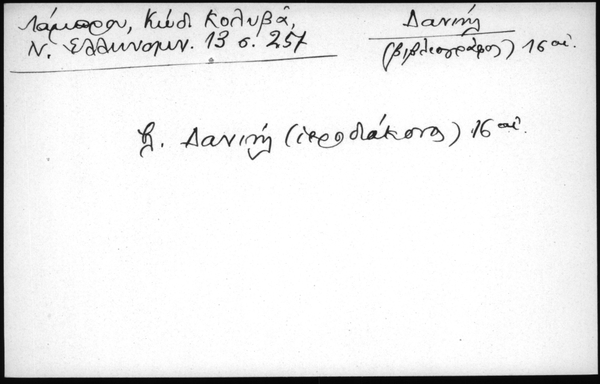 Λάμπρου, Κώδ. Κολυβᾶ,
Ν. Ελληνομν. 13 σ. 257
Δανιήλ
(βιβλιογράφος) 16 αἰ.
βλ. Δανιήλ (ἱεροδιάκονος) 16 αἰ.